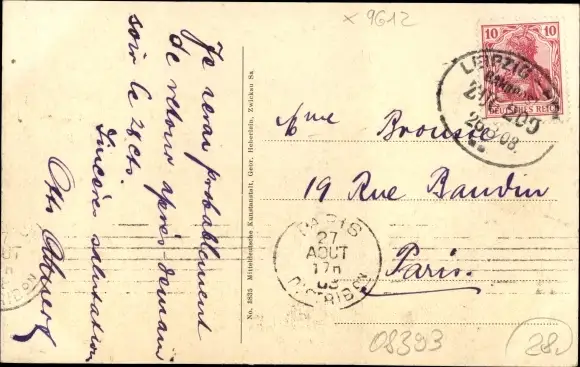 Je serai probablement
de retour après-demain
soir le 28 ct.
Sincères salutations
Otto
No. 3835 Mitteldeutsche Kunstanstalt, Gebr. Haberlein, Zwickau Sa.
× 9612
10 10
DEUTSCHES REICH
LEIPZIG
26.8.08.
Mme Brousse
19 Rue Baudin
Paris.
PARIS
27
AOUT
17h
08
DISTRIBON
08393
28.-